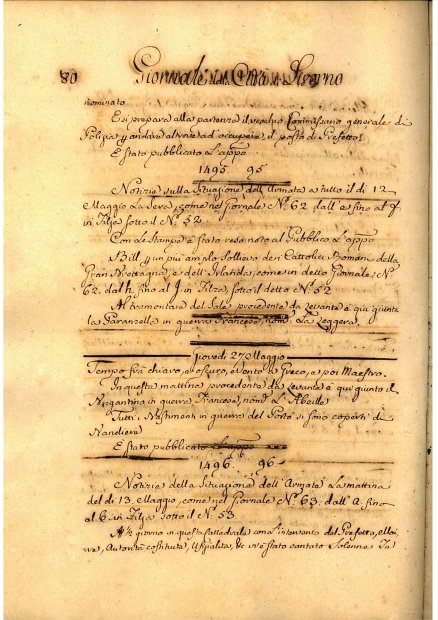 80 Giornale della Città di Livorno
nominato
E si prepara alla partenza il vecchio Commissario generale di
Polizia p andare altrove ad occupare il posto di Prefetto
E stato pubblicato L'appo
1495 95
Notizie sulla Situazione dell'Armata a tutto il di 12
Maggio La Sera, come nel Giornale N.° 62 dall' a fino al f
in Filza sotto il N.° 52
Con le Stampe è stato reso noto al Pubblico L'appo
Bill p un piu amplo sollievo dei Cattolici Romani della
Gran Brettagna, e dell'Irlanda, come in detto Giornale N.°
62. dal h fino al in Filza, sotto il detto N.° 52
Al tramontare del Sole procedente da Levante è qui giunta
la Paranzella in guerra Francese, nom. La Leggera.
Giovedì 27 Maggio
Tempo frà chiaro, e oscuro, e Vento a Greco, e poi Maestro.
In questa mattina procedente da Levante è qui giunto il
Brigantino in guerra Francese, nom. L'Abeille
Tutti i Bastimenti in guerra del Porto si sono coperti di
Bandiere
E stato pubblicato L'appo
1496. 96.
Notizie della Situazione dell'Armata La mattina
del di 13 Maggio, come nel Giornale N.° 63. dall'A fino
al 6. in Filza sotto il N.° 53
giorno in questa Cattedrale con l'intervento del Prefetto, e
Autorità costituite, è stato cantato Solenne Te